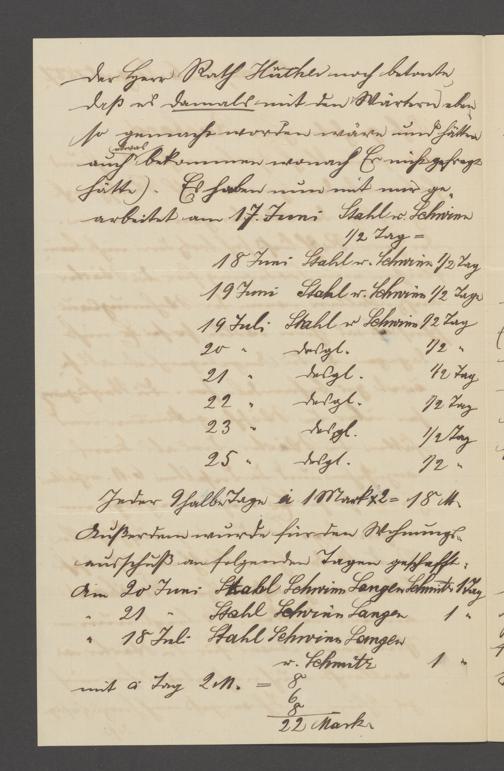 der Herr Rath Hüthe noch betonte,
daß es damals mit den Wärtern eben
so gemacht worden wäre und hätten
auch etwas bekommen wonach Er nicht gefragt
hätte). Es haben nun mit mir ge-
arbeitet am 17. Juni Stahl u. Schwinn
1/2 Tag =
18 Juni Stahl u. Schwinn 1/2 Tag
19 Juni Stahl u. Schwinn 1/2 Tage
19 Juli Stahl u Schwinn 1/2 Tag
20 " desgl. 1/2 "
21 " desgl. 1/2 Tag
22 " desgl. 1/2 Tag
23 " desgl. 1/2 Tag
25 " desgl. 1/2 "
Jeder 9 halbe Tage à 1 Mark x 2 = 18 M.
Außerdem wurde für den Wohnungs-
ausschuß an folgenden Tagen geschafft:
Am 20 Juni Stahl Schwinn Langen Schmitz 1 Tag
" 21 " Stahl Schwinn Langen 1 "
" 18 Juli Stahl Schwinn Langen
u. Schmitz 1 "
mit à Tag 2 M. = 8
6
8
22 Mark